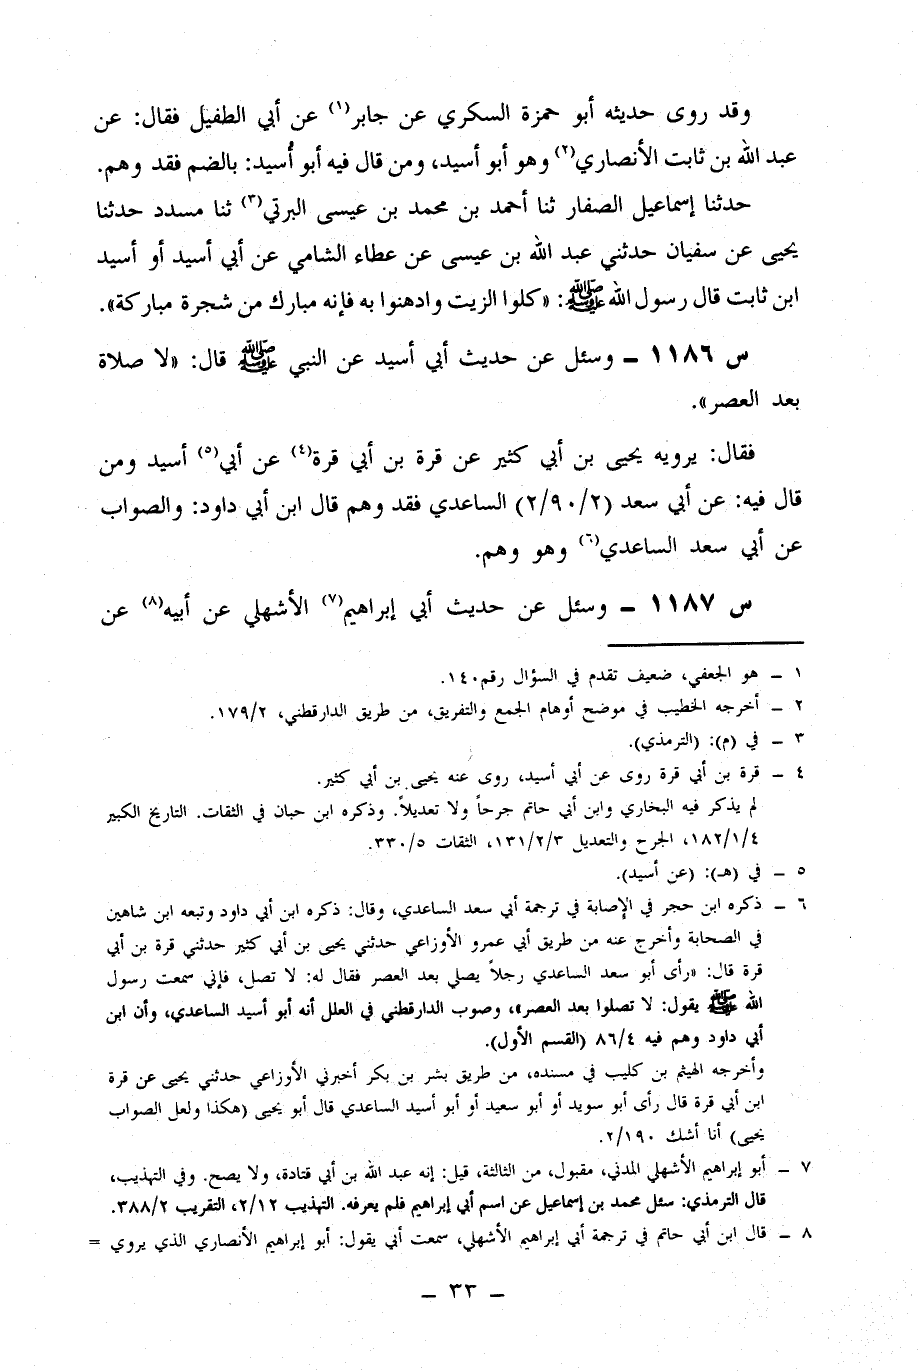 وقد روى حديثه أبو حمزة السكري عن جابر(١) عن أبي الطفيل فقال: عن
عبد الله بن ثابت الأنصاري(٢) وهو أبو أسيد، ومن قال فيه أبو أُسيد: بالضم فقد وهم.
حدثنا إسماعيل الصفار ثنا أحمد بن محمد بن عيسى البرتي(٣) ثنا مسدد حدثنا
يحيى عن سفيان حدثني عبد الله بن عيسى عن عطاء الشامي عن أبي أسيد أو أسيد
ابن ثابت قال رسول الله ﷺ: «كلوا الزيت وادهنوا به فإنه مبارك من شجرة مباركة».
س ١١٨٦ ـ وسئل عن حديث أبي أسيد عن النبي ﷺ قال: «لا صلاة
بعد العصر».
فقال: يرويه يحيى بن أبي كثير عن قرة بن أبي قرة(٤) عن أبي(٥) أسيد ومن
قال فيه: عن أبي سعد (٢/٩٠/٢) الساعدي فقد وهم قال ابن أبي داود: والصواب
عن أبي سعد الساعدي(٦) وهو وهم.
س ١١٨٧ ـ وسئل عن حديث أبي إبراهيم(٧) الأشهلي عن أبيه(٨) عن
١ ـ هو الجعفي، ضعيف تقدم في السؤال رقم١٤٠.
٢ ـ أخرجه الخطيب في موضح أوهام الجمع والتفريق، من طريق الدارقطني، ١٧٩/٢.
٣ ـ في (م): (الترمذي).
٤ ـ قرة بن أبي قرة روى عن أبي أسيد، روى عنه يحيى بن أبي كثير.
لم يذكر فيه البخاري وابن أبي حاتم جرحاً ولا تعديلاً. وذكره ابن حبان في الثقات. التاريخ الكبير
١٨٢/١/٤، الجرح والتعديل ١٣١/٢/٣، الثقات ٣٣٠/٥.
٥ ـ في (هـ): (عن أسيد).
٦ ـ ذكره ابن حجر في الإصابة في ترجمة أبي سعد الساعدي، وقال: ذكره ابن أبي داود وتبعه ابن شاهين
في الصحابة وأخرج عنه من طريق أبي عمرو الأوزاعي حدثني يحيى بن أبي كثير حدثني قرة بن أبي
قرة قال: «رأى أبو سعد الساعدي رجلاً يصلي بعد العصر فقال له: لا تصل، فإني سمعت رسول
الله ﷺ يقول: لا تصلوا بعد العصر»، وصوب الدارقطني في العلل أنه أبو أسيد الساعدي، وأن ابن
أبي داود وهم فيه ٨٦/٤ (القسم الأول).
وأخرجه الهيثم بن كليب في مسنده، من طريق بشر بن بكر أخبرني الأوزاعي حدثني يحيى عن قرة
ابن أبي قرة قال رأى أبو سويد أو أبو سعيد أو أبو أسيد الساعدي قال أبو يحيى (هكذا ولعل الصواب
يحيى) أنا أشك ٢/١٩٠.
٧ ـ أبو إبراهيم الأشهلي المدني، مقبول، من الثالثة، قيل: إنه عبد الله بن أبي قتادة، ولا يصح. وفي التهذيب،
قال الترمذي: سئل محمد بن إسماعيل عن اسم أبي إبراهيم فلم يعرفه. التهذيب ٢/١٢، التقريب ٣٨٨/٢.
٨ ـ قال ابن أبي حاتم في ترجمة أبي إبراهيم الأشهلي، سمعت أبي يقول: أبو إبراهيم الأنصاري الذي يروي =
ـ ٣٣ ـ